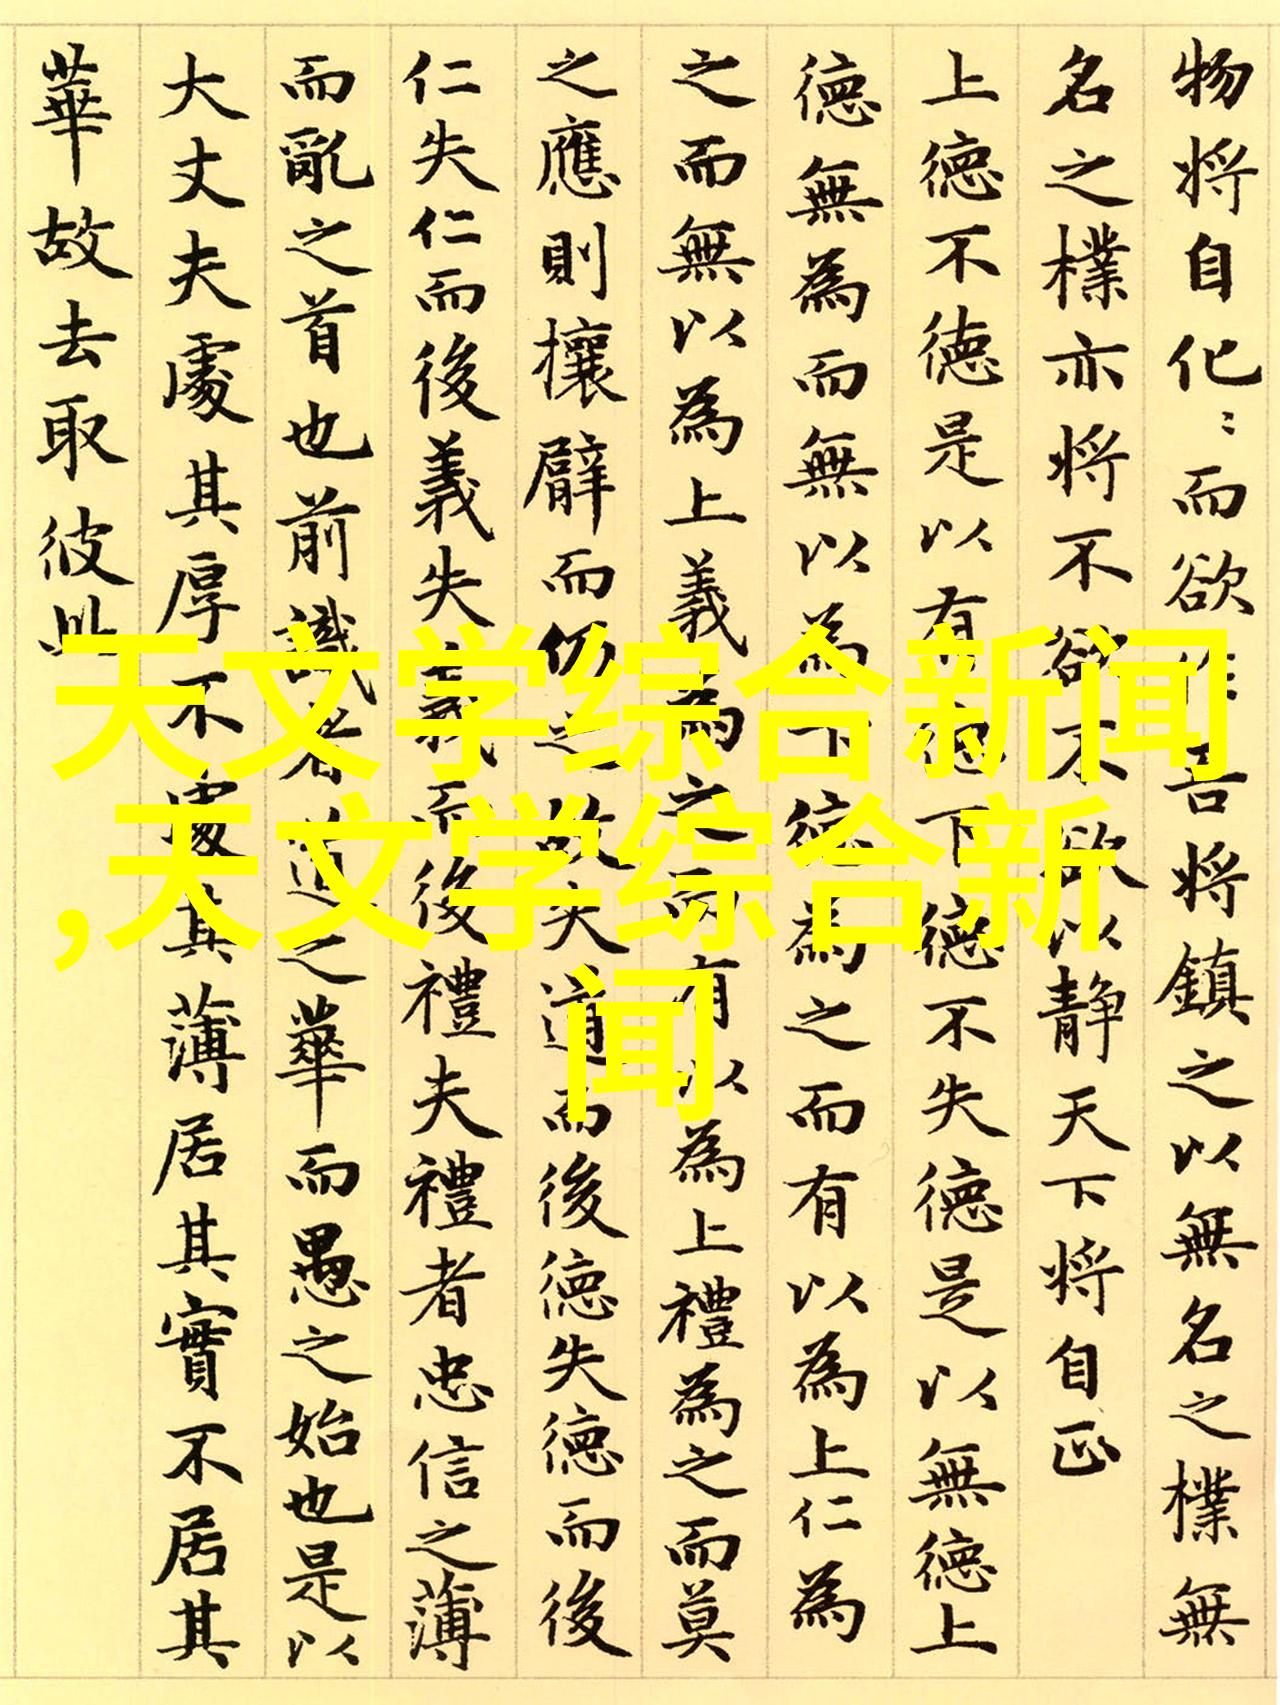 物将自化〻而欲作吾将鎮之以無名之樸無
名之樸亦将不欲不欲以静天下将自正
上德不德是以有德下德不失德是以無德上
德無為而無以為下德為之而有以為上仁為
之而無以為上義為之而有以為上禮為之而莫
之應則攘臂而仍之故失道而後德失德而後
仁失仁而後義失義而後禮夫禮者忠信之薄
而亂之首也前識者道之華而愚之始也是以
大丈夫處其厚不處其薄居其實不居其
華故去取彼此
天文学综合新闻
,天文学综合新
闻